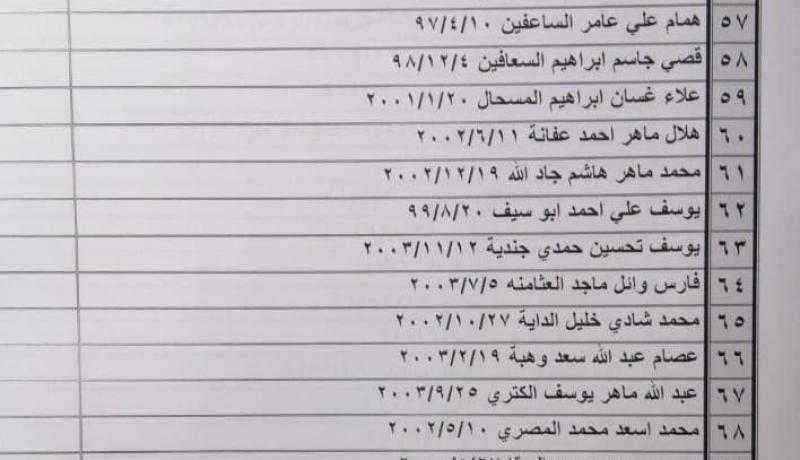 ٥٧ همام علي عامر الساعفين ٩٧/٤/١٠
٥٨ قصي جاسم ابراهيم السعافين ٩٨/١٢/٤
٥٩ علاء غسان ابراهيم المسحال ٢٠٠١/١/٢٠
٦٠ هلال ماهر احمد عفانة ٢٠٠٢/٦/١١
٦١ محمد ماهر هاشم جاد الله ٢٠٠٢/١٢/١٩
٦٢ يوسف علي احمد ابو سيف ٩٩/٨/٢٠
٦٣ يوسف تحسين حمدي جندية ٢٠٠٣/١١/١٢
٦٤ فارس وائل ماجد العثامنه ٢٠٠٣/٧/٥
٦٥ محمد شادي خليل الداية ٢٠٠٢/١٠/٢٧
٦٦ عصام عبد الله سعد وهبة ٢٠٠٣/٢/١٩
٦٧ عبد الله ماهر يوسف الكتري ٢٠٠٣/٩/٢٥
٦٨ محمد اسعد محمد المصري ٢٠٠٢/٥/١٠